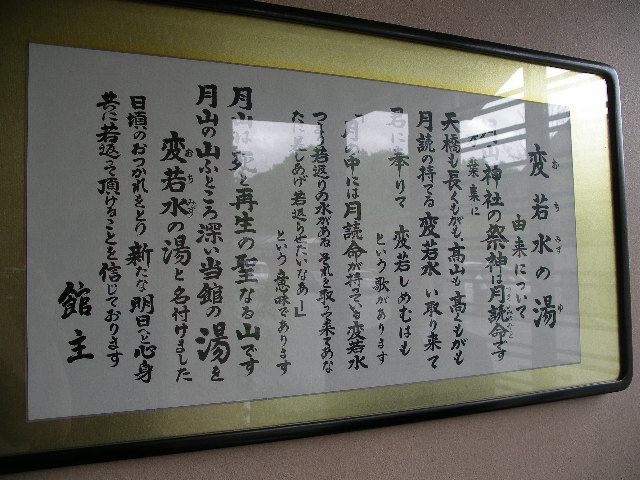 変若水の湯
おちみず ゆ
由来について
月山神社の祭神は月読命です
つきよみのみこと
万葉集に
天橋も長くもがも、高山も高くもがも
月読の持てる変若水 い取り来て
君に奉りて 変若しめむはも
という歌があります
「月の中には月読命が持ている変若水
つまり若返りの水がある それを取って来てあな
たに差しあげ若返らせたいなあ―」
という意味であります
月山は死と再生の聖なる山です
月山の山ふところ深い当館の湯を
変若水の湯と名付けました
おちみず
日頃のおつかれをとり 新たな明日と心身
共に若返って頂けることを信じております
館主